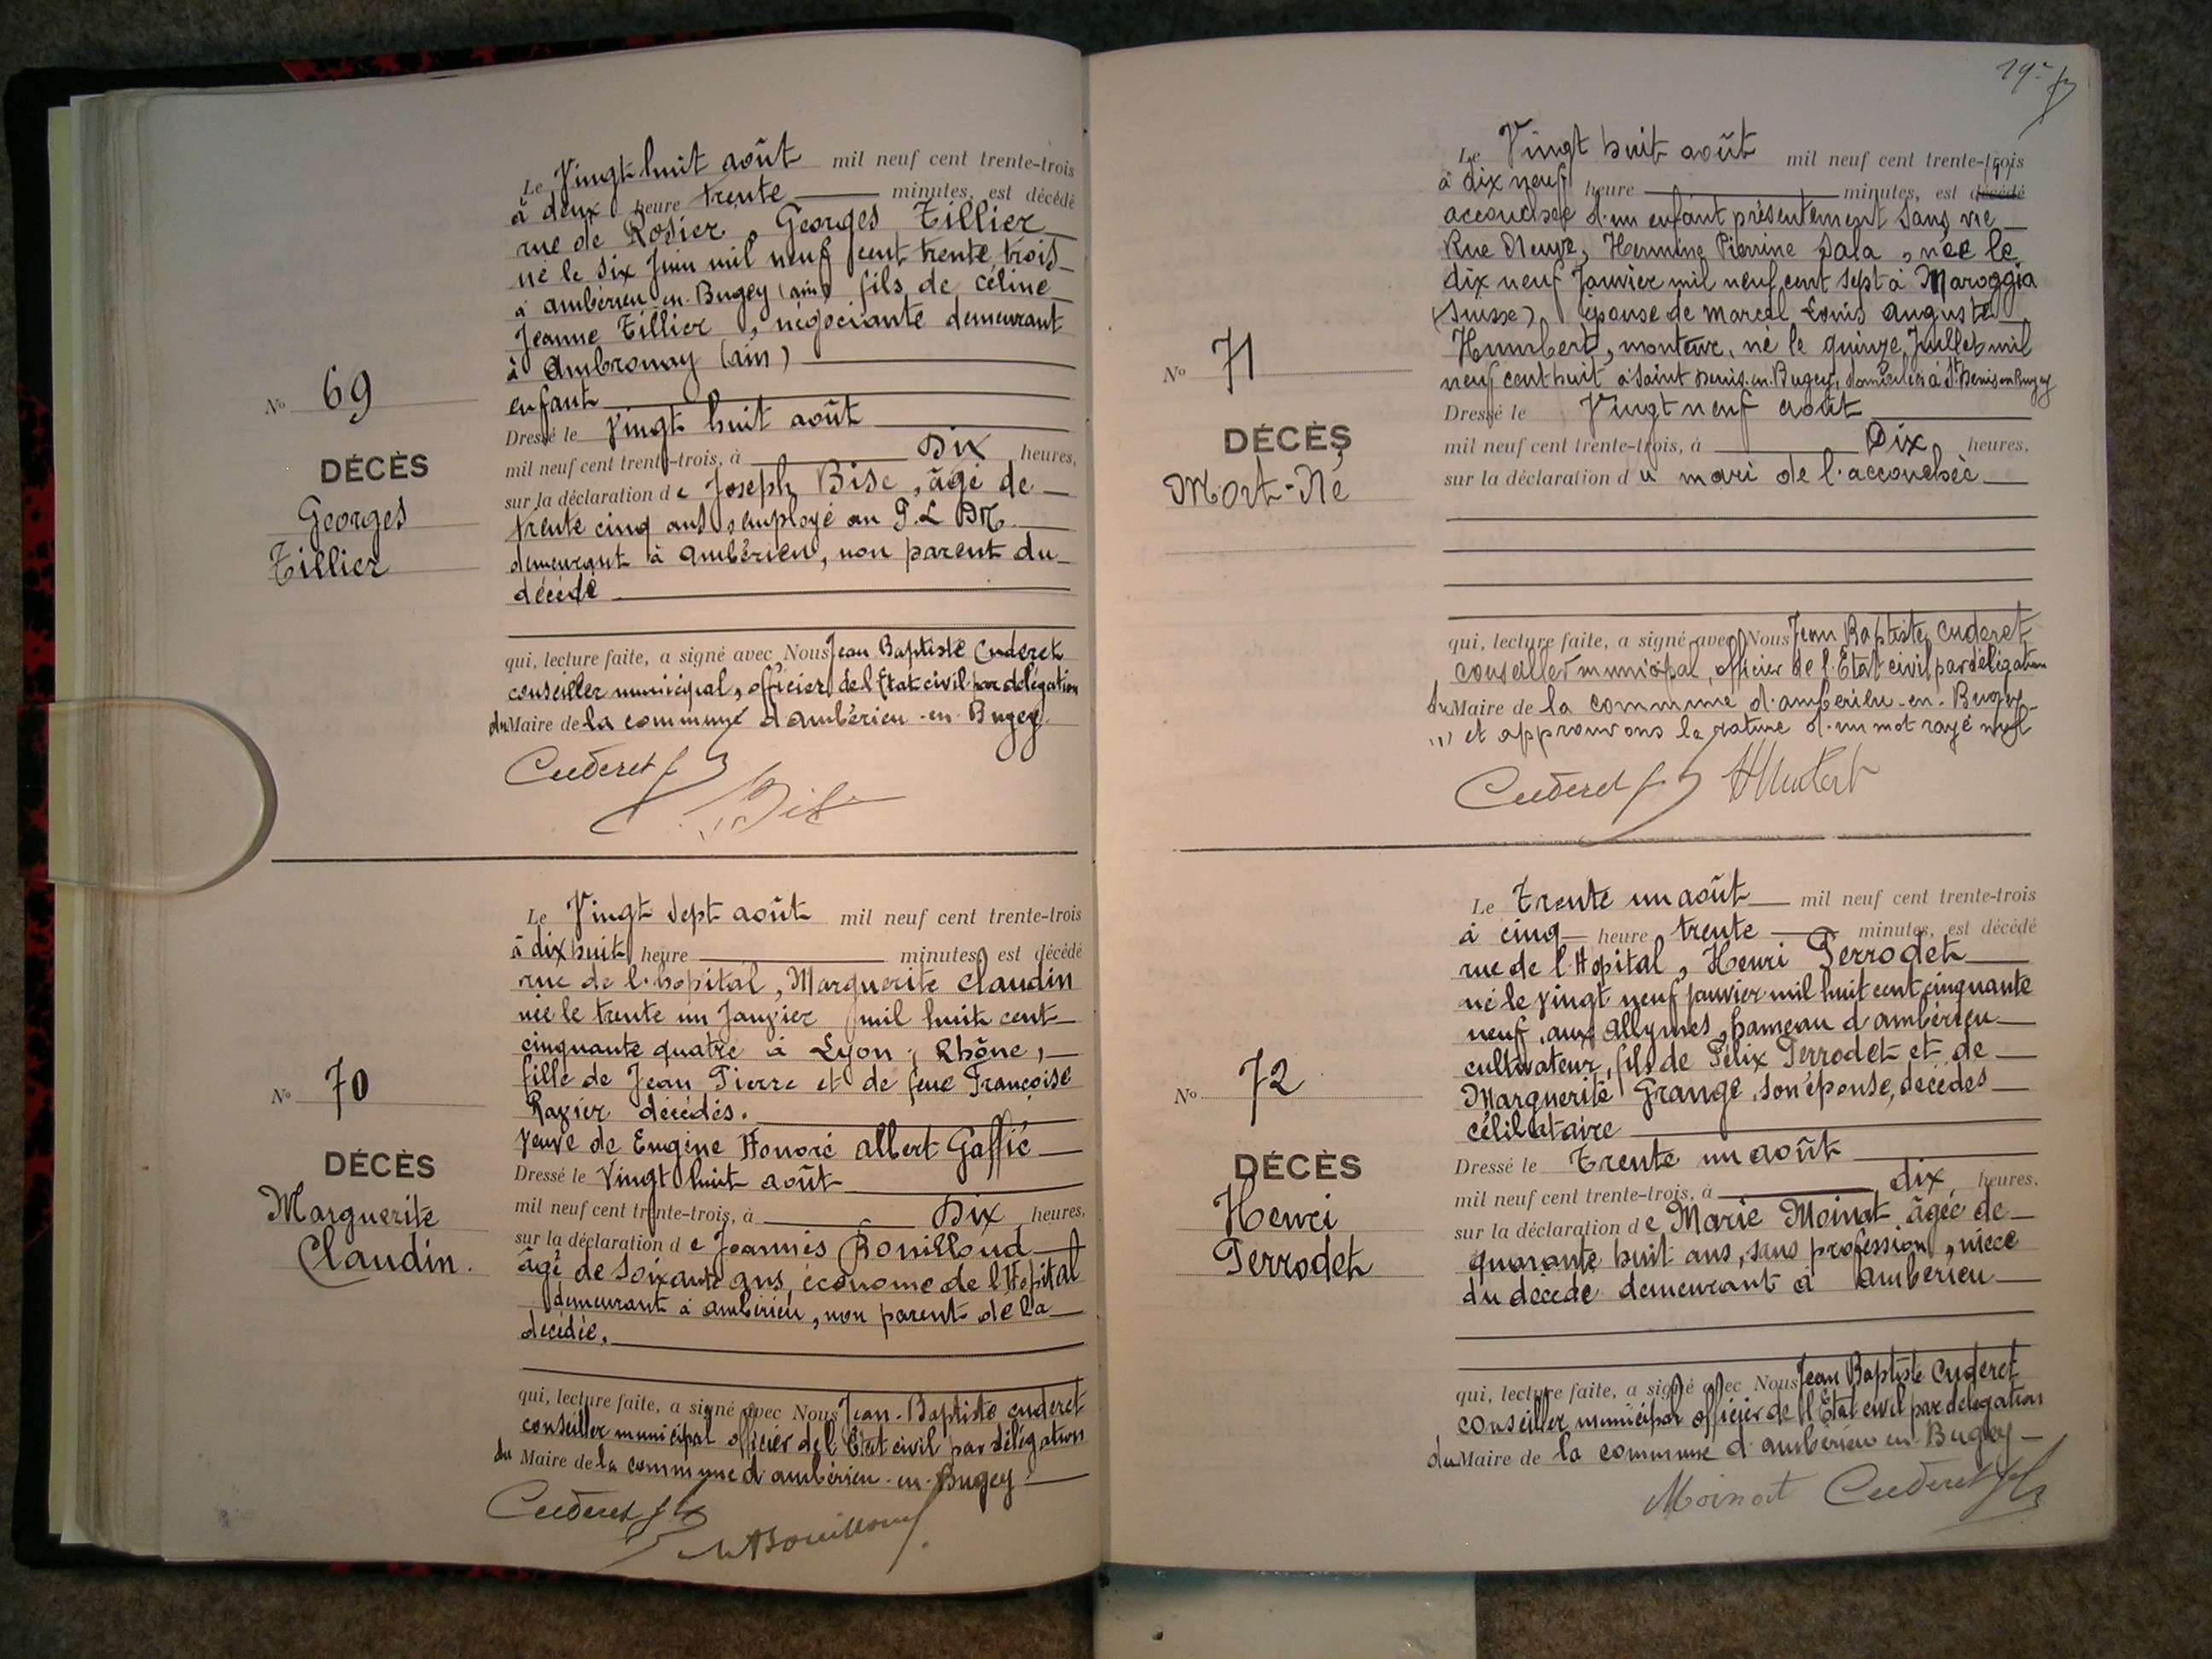 Le Vingt huit août mil neuf cent trente-trois
à deux heure trente minutes, est décédé
rue de Rosier, Georges Tillier
né le six Juin mil neuf cent trente trois
à ambérieu en Bugey (ain) fils de Céline
Jeanne Tillier, négociante demeurant
à Ambronay (ain)
enfant
No 69
Dressé le Vingt huit août
DÉCÈS
mil neuf cent trente-trois, à Dix heures,
Georges
Tillier
sur la déclaration de Joseph Bise, âgé de
trente cinq ans, employé au P.L.M.
demeurant à ambérieu, non parent du
décédé
qui, lecture faite, a signé avec Nous Jean Baptiste Cuderet
conseiller municipal, officier de l'Etat civil par délégation
du Maire de la commune d'ambérieu-en-Bugey
Cuderet Bise
Le Vingt sept août mil neuf cent trente-trois
à dix huit heure minutes est décédé
rue de l'hopital, Marguerite Claudin
née le trente un Janvier mil huit cent
cinquante quatre à Lyon, Rhône,
fille de Jean Pierre et de feue Françoise
Ravier décédés.
Veuve de Eugène Honoré Albert Gaffié
No 70
DÉCÈS
Marguerite
Claudin.
Dressé le Vingt huit août
mil neuf cent trente-trois, à Dix heures,
sur la déclaration de Joannès Bouilloud
âgé de soixante ans, économe de l'Hopital
demeurant à ambérieu, non parent de la
décédée.
qui, lecture faite, a signé avec Nous Jean-Baptiste Cuderet
conseiller municipal officier de l'Etat civil par délégation
du Maire de la commune d'ambérieu-en-Bugey
Cuderet Bouilloud
19e
Le Vingt huit août mil neuf cent trente-trois
à dix neuf heure minutes, est décédé
accouchée d'un enfant présentement sans vie
Rue Neuve, Hermine Pierrine Sala, née le
dix neuf Janvier mil neuf cent sept à Maroggia
(Suisse), épouse de Marcel Louis Auguste
Humbert, monteur, né le quinze Juillet mil
neuf cent huit à Saint Denis-en-Bugey, domiciliés à St Denis en Bugey
No 71
DÉCÈS
Mort-Né
Dressé le Vingt neuf août
mil neuf cent trente-trois, à Dix heures,
sur la déclaration du mari de l'accouchée
qui, lecture faite, a signé avec Nous Jean Baptiste Cuderet
conseiller municipal, officier de l'Etat civil par délégation
du Maire de la commune d'ambérieu-en-Bugey
et approuvons la rature d'un mot rayé nul
Cuderet Humbert
Le Trente un août mil neuf cent trente-trois
à cinq heure trente minutes, est décédé
rue de l'Hopital, Henri Perrodet
né le vingt neuf janvier mil huit cent cinquante
neuf, aux Allymes, hameau d'ambérieu
cultivateur, fils de Félix Perrodet et de
Marguerite Grange, son épouse, décédés
célibataire
No 72
DÉCÈS
Henri
Perrodet
Dressé le Trente un août
mil neuf cent trente-trois, à dix heures,
sur la déclaration de Marie Moinat, âgée de
quarante huit ans, sans profession, nièce
du décédé demeurant à ambérieu
qui, lecture faite, a signé avec Nous Jean Baptiste Cuderet
conseiller municipal officier de l'Etat civil par délégation
du Maire de la commune d'ambérieu en Bugey
Moinat Cuderet